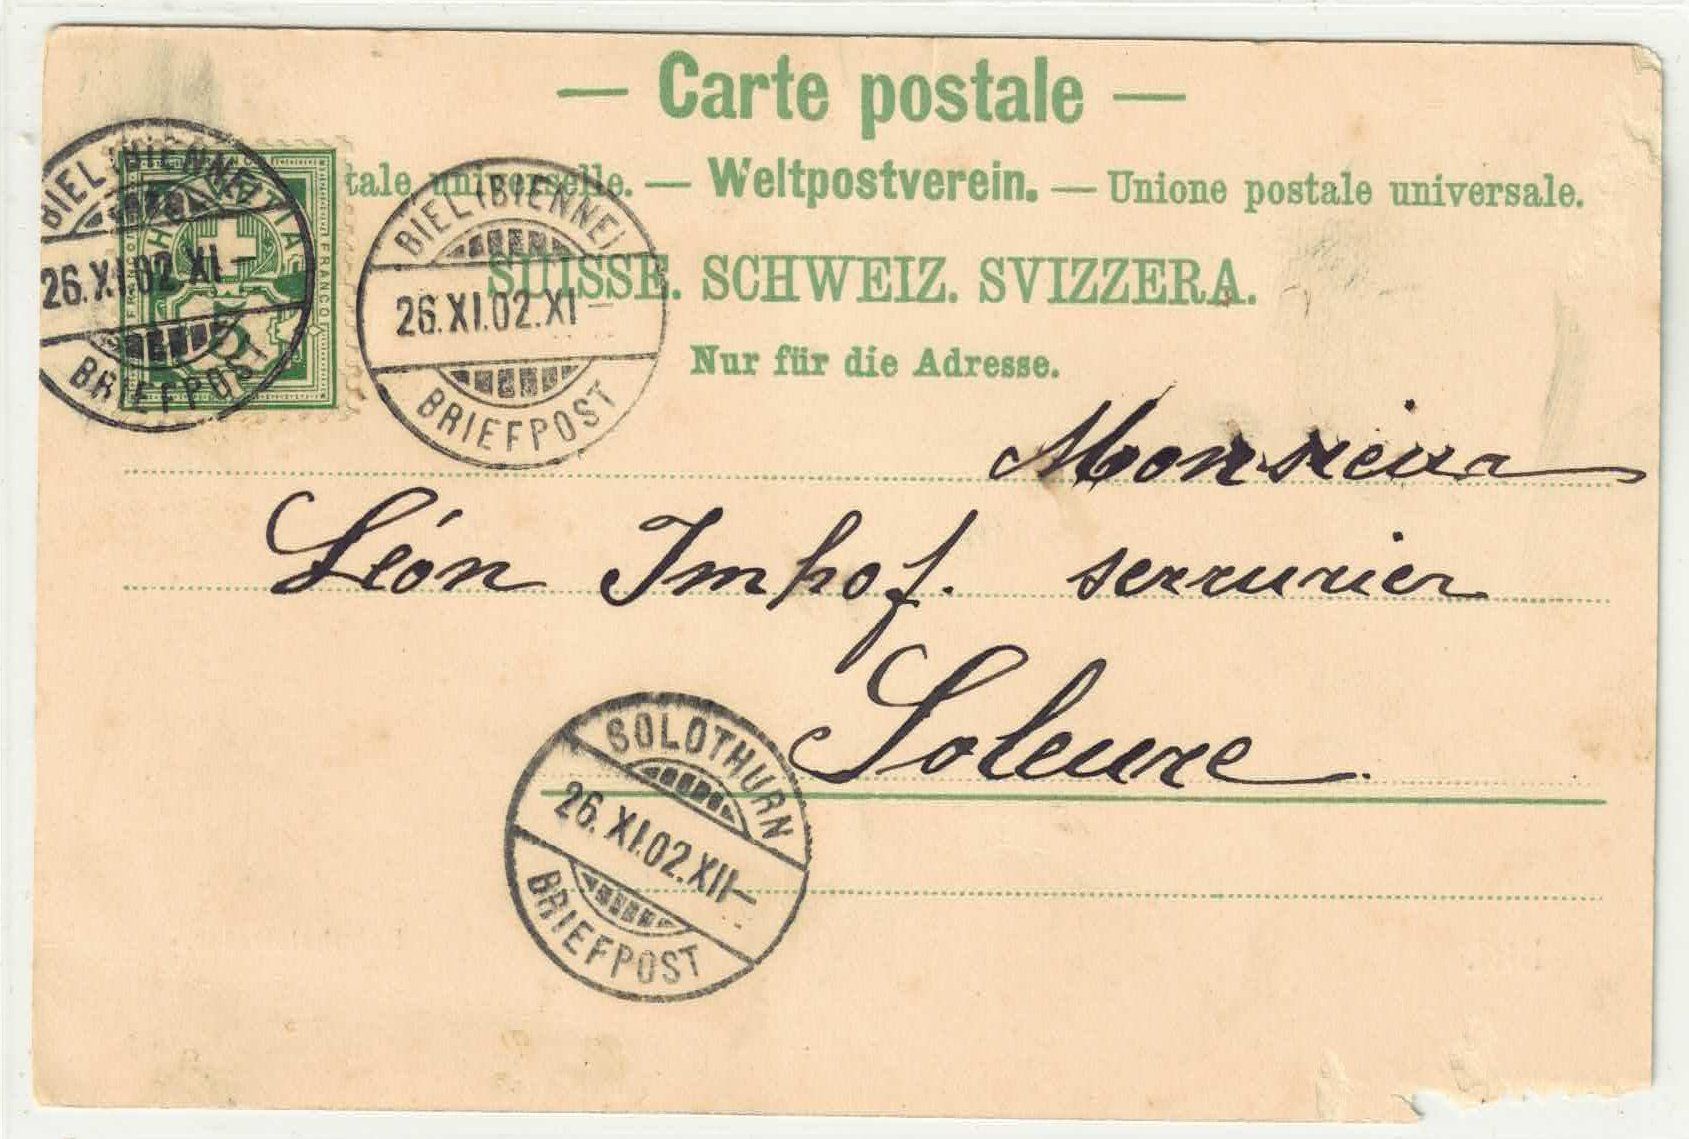 — Carte postale —
tale universelle. — Weltpostverein. — Unione postale universale.
SUISSE. SCHWEIZ. SVIZZERA.
Nur für die Adresse.
BIEL (BIENNE)
26.XI.02.XI-
BRIEFPOST
FRANCO
5
BIEL (BIENNE)
26.XI.02.XI-
BRIEFPOST
Monsieur
Léon Imhof. serrurier
Soleure.
SOLOTHURN
26.XI.02.XII-
BRIEFPOST